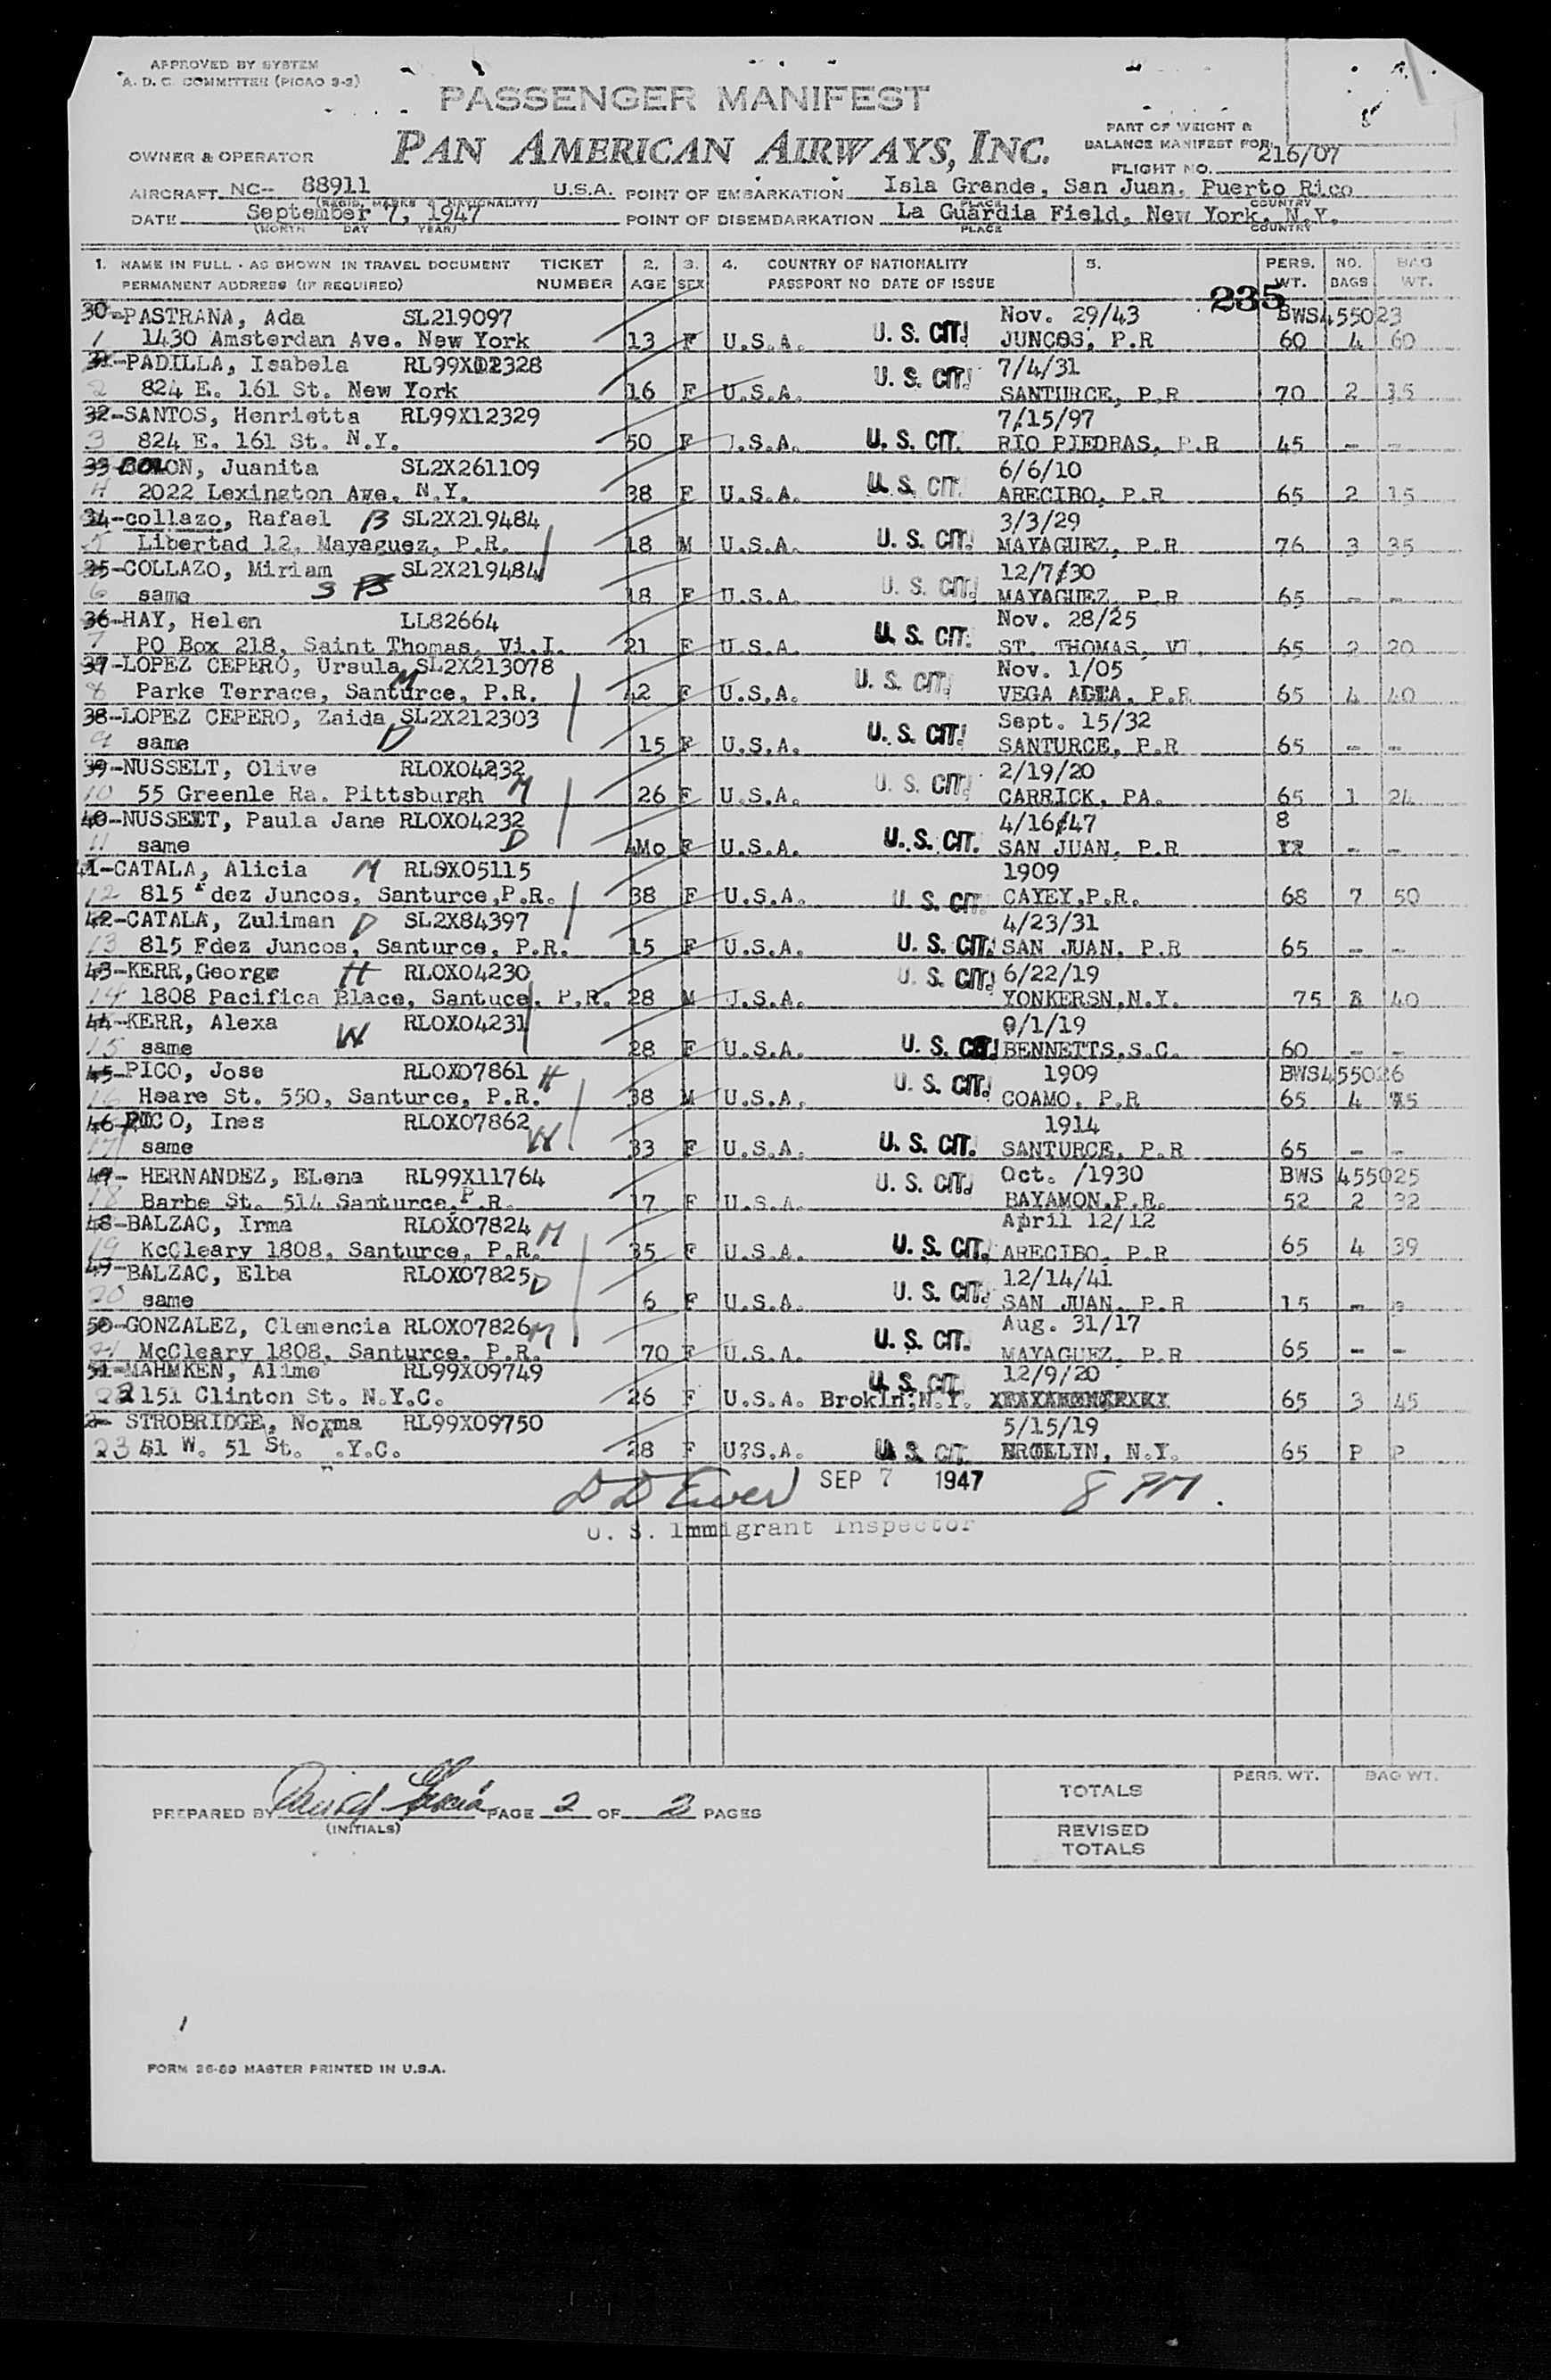 APPROVED BY SYSTEM
A. D. C. COMMITTEE (PICAO 3-2)
PASSENGER MANIFEST
PAN AMERICAN AIRWAYS, INC.
PART OF WEIGHT &
BALANCE MANIFEST FOR
OWNER & OPERATOR
FLIGHT NO. 216/07
AIRCRAFT NC-- 88911 U.S.A. POINT OF EMBARKATION Isla Grande, San Juan, Puerto Rico
(REGIS. MARKS & NATIONALITY) PLACE COUNTRY
DATE September 7, 1947 POINT OF DISEMBARKATION La Guardia Field, New York, N.Y.
(MONTH DAY YEAR) PLACE COUNTRY
1. NAME IN FULL - AS SHOWN IN TRAVEL DOCUMENT TICKET 2. 3. 4. COUNTRY OF NATIONALITY 5. PERS. NO. BAG
PERMANENT ADDRESS (IF REQUIRED) NUMBER AGE SEX PASSPORT NO DATE OF ISSUE 235 WT. BAGS WT.
30-PASTRANA, Ada SL219097 Nov. 29/43 BWS455023
1 1430 Amsterdan Ave. New York 13 F U.S.A. U. S. CIT. JUNCOS, P.R 60 4 60
31-PADILLA, Isabela RL99X12328 7/4/31
2 824 E. 161 St. New York 16 F U.S.A. U. S. CIT. SANTURCE, P.R 70 2 15
32-SANTOS, Henrietta RL99X12329 7/15/97
3 824 E. 161 St. N.Y. 50 F U.S.A. U. S. CIT. RIO PIEDRAS, P.R 45 - -
33-COLON, Juanita SL2X261109 6/6/10
4 2022 Lexington Ave. N.Y. 38 F U.S.A. U. S. CIT. ARECIBO, P.R 65 2 15
34-collazo, Rafael B SL2X219484 3/3/29
5 Libertad 12, Mayaguez, P.R. 18 M U.S.A. U. S. CIT. MAYAGUEZ, P.R 76 3 35
35-COLLAZO, Miriam SL2X219484 12/7/30
6 same S 18 F U.S.A. U. S. CIT. MAYAGUEZ, P.R 65 - -
36-HAY, Helen LL82664 Nov. 28/25
7 PO Box 218, Saint Thomas, Vi.I. 21 F U.S.A. U. S. CIT. ST. THOMAS, VI. 65 2 20
37-LOPEZ CEPERO, Ursula SL2X213078 Nov. 1/05
8 Parke Terrace, Santurce, P.R. M 42 F U.S.A. U. S. CIT. VEGA ALTA, P.R 65 4 40
38-LOPEZ CEPERO, Zaida SL2X212303 Sept. 15/32
9 same D 15 F U.S.A. U. S. CIT. SANTURCE, P.R 65 - -
39-NUSSELT, Olive RLOX04232 2/19/20
10 55 Greenle Ra. Pittsburgh M 26 F U.S.A. U. S. CIT. CARRICK, PA. 65 1 24
40-NUSSELT, Paula Jane RLOX04232 4/16/47 8
11 same D 4Mo F U.S.A. U. S. CIT. SAN JUAN, P.R - -
41-CATALA, Alicia M RL9X05115 1909
12 815 dez Juncos, Santurce,P.R. 38 F U.S.A. U. S. CIT. CAYEY,P.R. 68 7 50
42-CATALA, Zuliman D SL2X84397 4/23/31
13 815 Fdez Juncos, Santurce, P.R. 15 F U.S.A. U. S. CIT. SAN JUAN, P.R 65 - -
43-KERR,George H RLOX04230 6/22/19
14 1808 Pacifica Blace, Santuce, P.R. 28 M U.S.A. U. S. CIT. YONKERSN,N.Y. 75 3 40
44-KERR, Alexa RLOX04231 9/1/19
15 same W 28 F U.S.A. U. S. CIT. BENNETTS,S.C. 60 - -
45-PICO, Jose RLOX07861 H 1909 BWS455026
16 Heare St. 550, Santurce, P.R. 38 M U.S.A. U. S. CIT. COAMO, P.R 65 4 75
46-PICO, Ines RLOX07862 1914
17 same W 33 F U.S.A. U. S. CIT. SANTURCE, P.R 65 - -
47- HERNANDEZ, ELena RL99X11764 Oct. /1930 BWS 455025
18 Barbe St. 514 Santurce,P.R. 17 F U.S.A. U. S. CIT. BAYAMON,P.R. 52 2 32
48-BALZAC, Irma RLOX07824 M April 12/12
19 KcCleary 1808, Santurce, P.R. 35 F U.S.A. U. S. CIT. ARECIBO, P.R 65 4 39
49-BALZAC, Elba RLOX07825 D 12/14/41
20 same 6 F U.S.A. U. S. CIT. SAN JUAN, P.R 15 - -
50-GONZALEZ, Clemencia RLOX07826 M Aug. 31/17
21 McCleary 1808, Santurce, P.R. 70 F U.S.A. U. S. CIT. MAYAGUEZ, P.R 65 - -
51-MAHMKEN, Alime RL99X09749 12/9/20
22 151 Clinton St. N.Y.C. 26 F U.S.A. Brokln,N.Y. U. S. CIT 65 3 45
STROBRIDGE, Norma RL99X09750 5/15/19
23 41 W. 51 St. .Y.C. 28 F U?S.A. U. S. CIT. BROLLYN, N.Y. 65 P P
D D Ewer SEP 7 1947 8 PM.
U. S. Immigrant Inspector
PREPARED BY David Garcia PAGE 2 OF 2 PAGES
(INITIALS)
PERS. WT. BAG WT.
TOTALS
REVISED
TOTALS
FORM 26-89 MASTER PRINTED IN U.S.A.